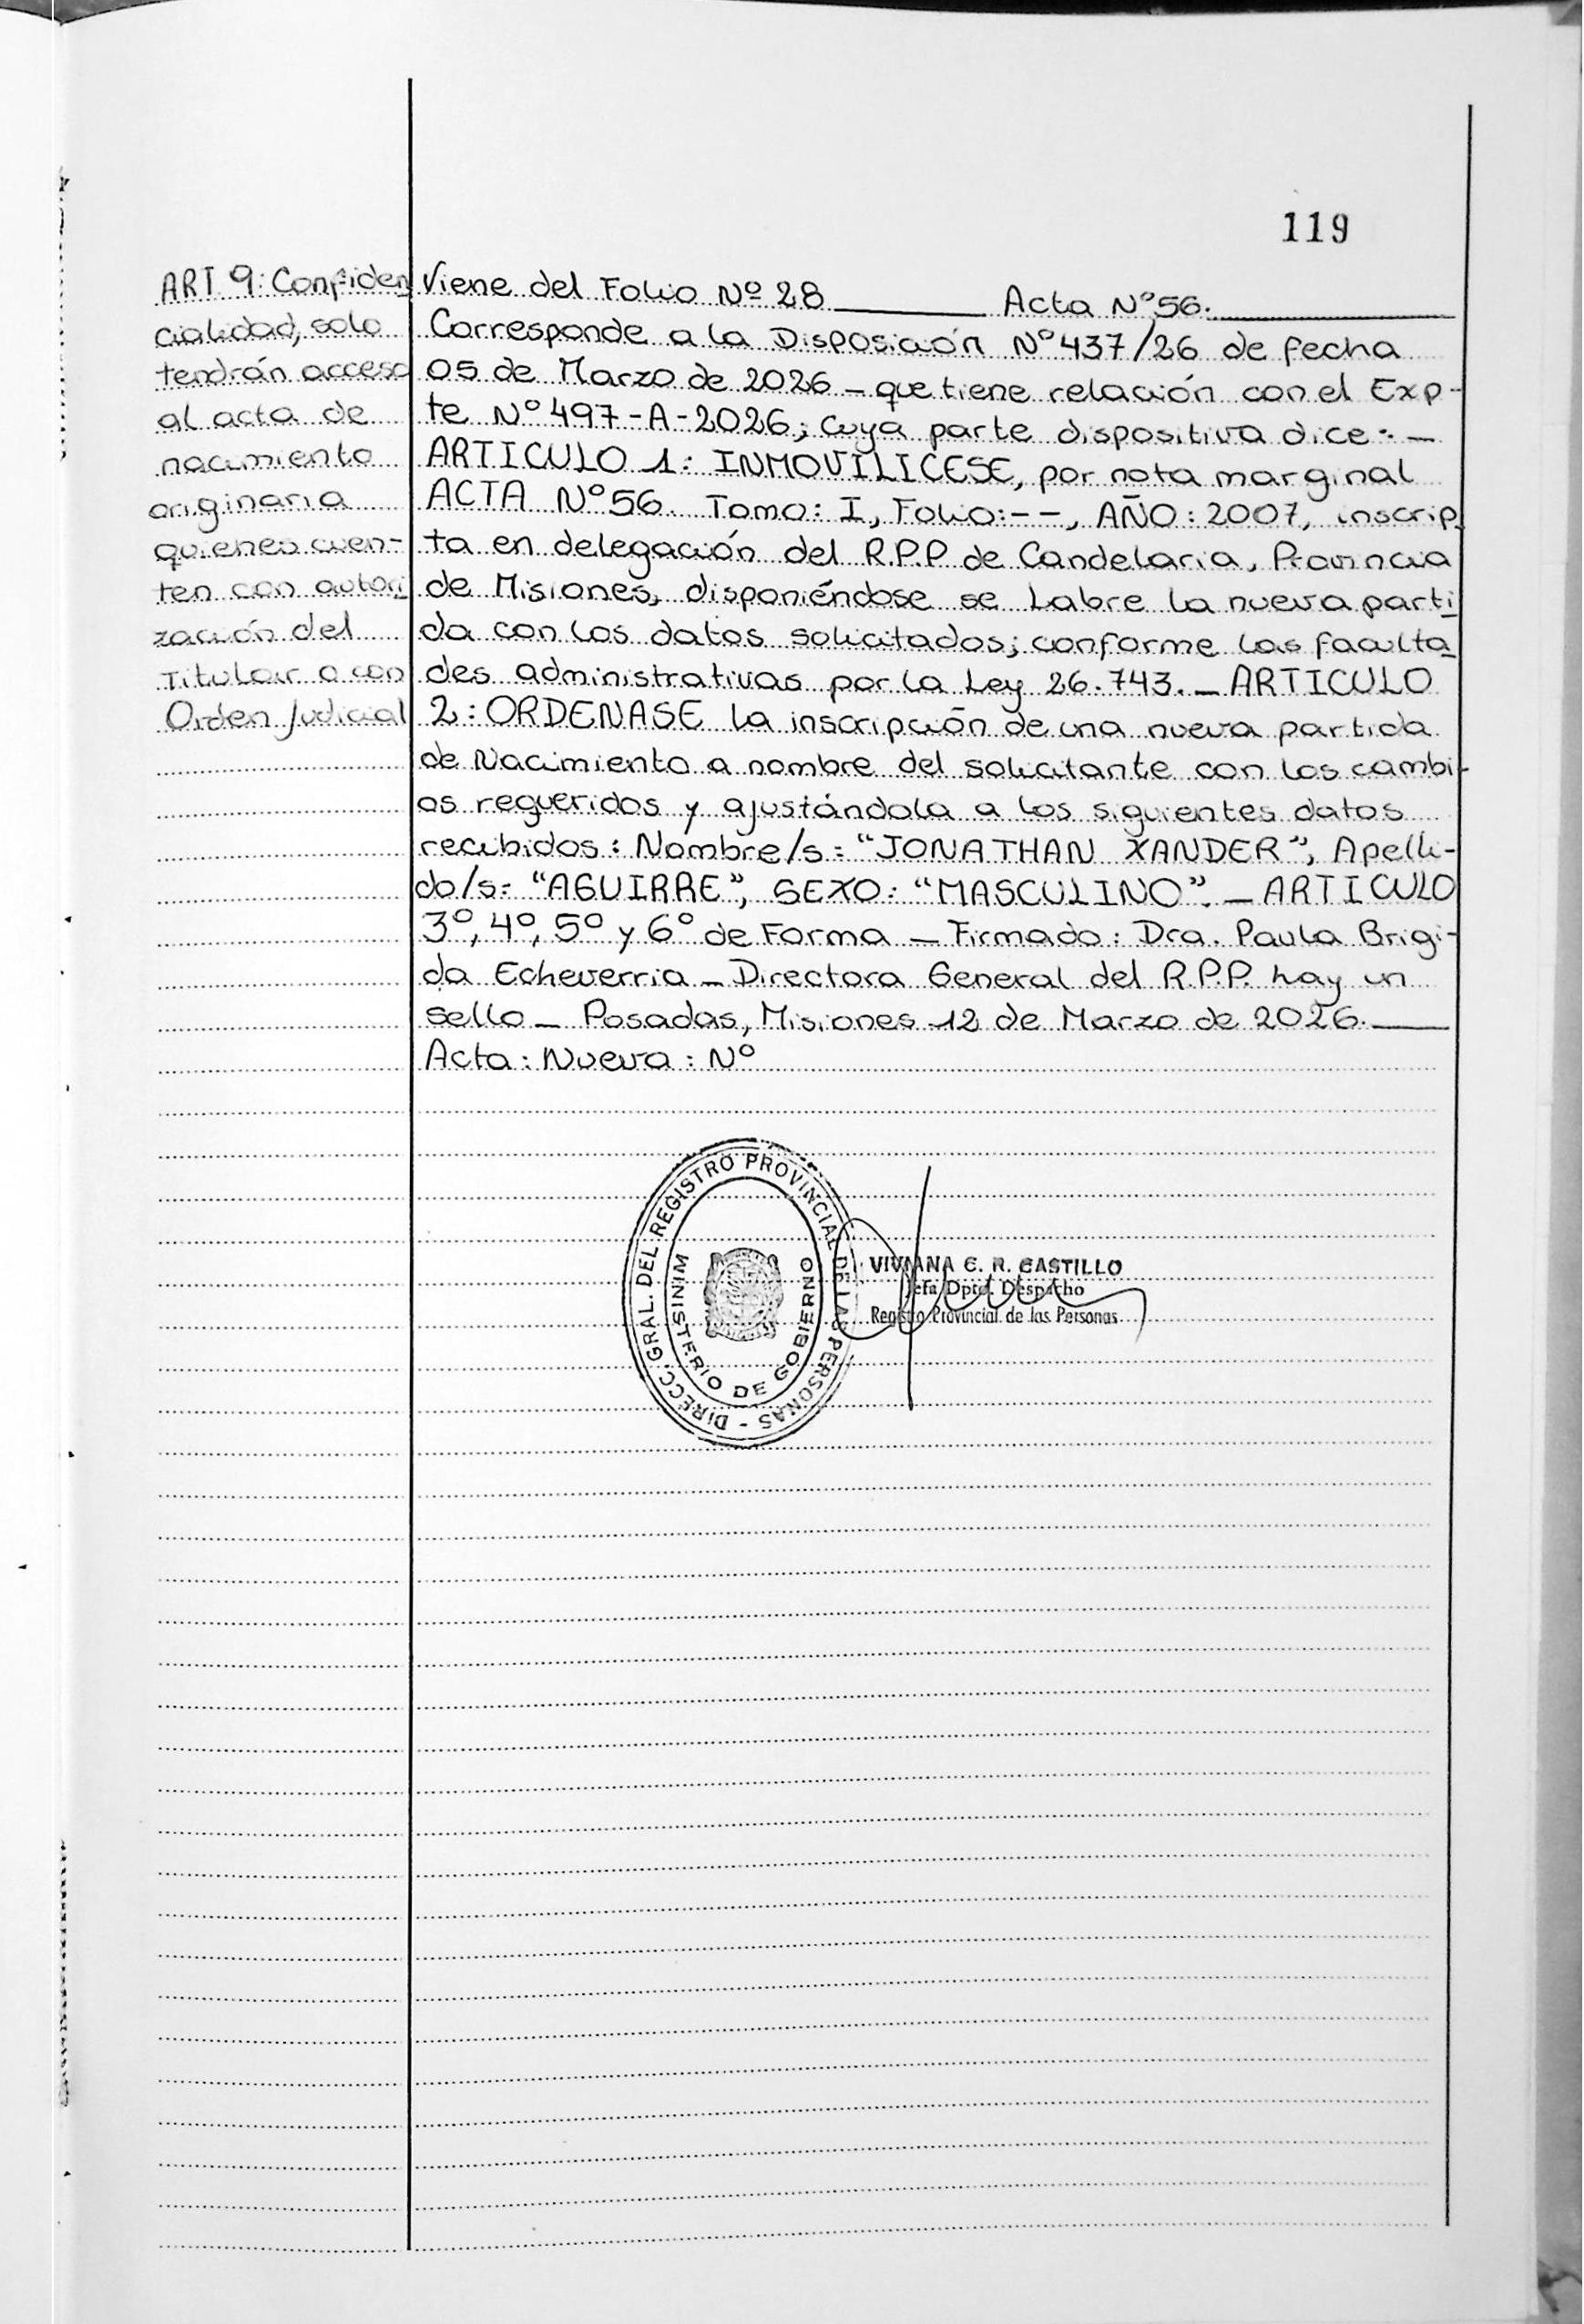 119
ART 9: Confiden
cialidad, solo
tendrán acceso
al acta de
nacimiento
originaria
quienes cuen-
ten con autori
zación del
Titular o con
Orden Judicial
Viene del Folio Nº 28 Acta Nº 56.
Corresponde a la Disposición Nº 437/26 de fecha
05 de Marzo de 2026 - que tiene relación con el Exp-
te Nº 497-A-2026; Cuya parte dispositiva dice: -
ARTICULO 1: INMOVILICESE, por nota marginal
ACTA Nº 56. Tomo: I, Folio: --, AÑO: 2007, inscrip
ta en delegación del R.P.P de Candelaria, Provincia
de Misiones, disponiéndose se Labre la nueva parti
da con los datos solicitados; conforme las faculta
des administrativas por la Ley 26.743. - ARTICULO
2: ORDENASE la inscripción de una nueva partida
de Nacimiento a nombre del solicitante con los cambi-
os requeridos y ajustándola a los siguientes datos
recibidos: Nombre/s: "JONATHAN XANDER", Apelli-
do/s: "AGUIRRE", SEXO: "MASCULINO". - ARTICULO
3º, 4º, 5º y 6º de Forma - Firmado: Dra. Paula Brigi-
da Echeverria - Directora General del R.P.P. hay un
sello - Posadas, Misiones 12 de Marzo de 2026.
Acta: Nueva: Nº
DIRECC. GRAL. DEL REGISTRO PROVINCIAL DE LAS PERSONAS -
MINISTERIO DE GOBIERNO
VIVIANA C. R. CASTILLO
Jefa Dpto. Despacho
Registro Provincial de las Personas